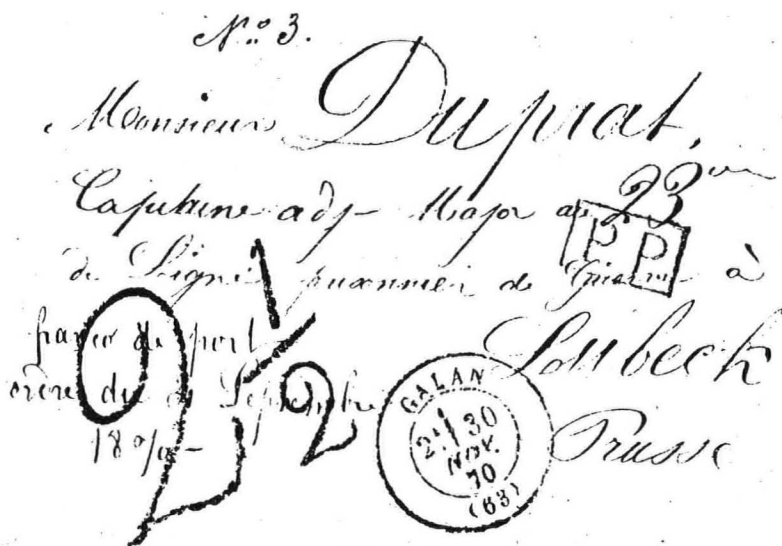 N.º 3.
Monsieur Duprat,
Capitaine adj- Major au 23me
de Ligne prisonnier de Guerre à
Loubeck
franco de port
du Septembre
1870-
Prusse
PP
2 1/2
GALAN
2E 30
NOV.
70
(63)